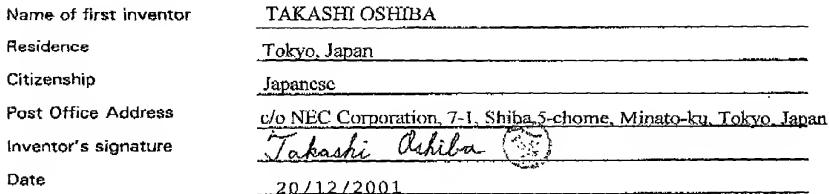 Name of first inventor TAKASHI OSHIBA
Residence Tokyo, Japan
Citizenship Japanese
Post Office Address c/o NEC Corporation, 7-1, Shiba,5-chome, Minato-ku, Tokyo, Japan
Inventor's signature Takashi Oshiba
Date 20/12/2001